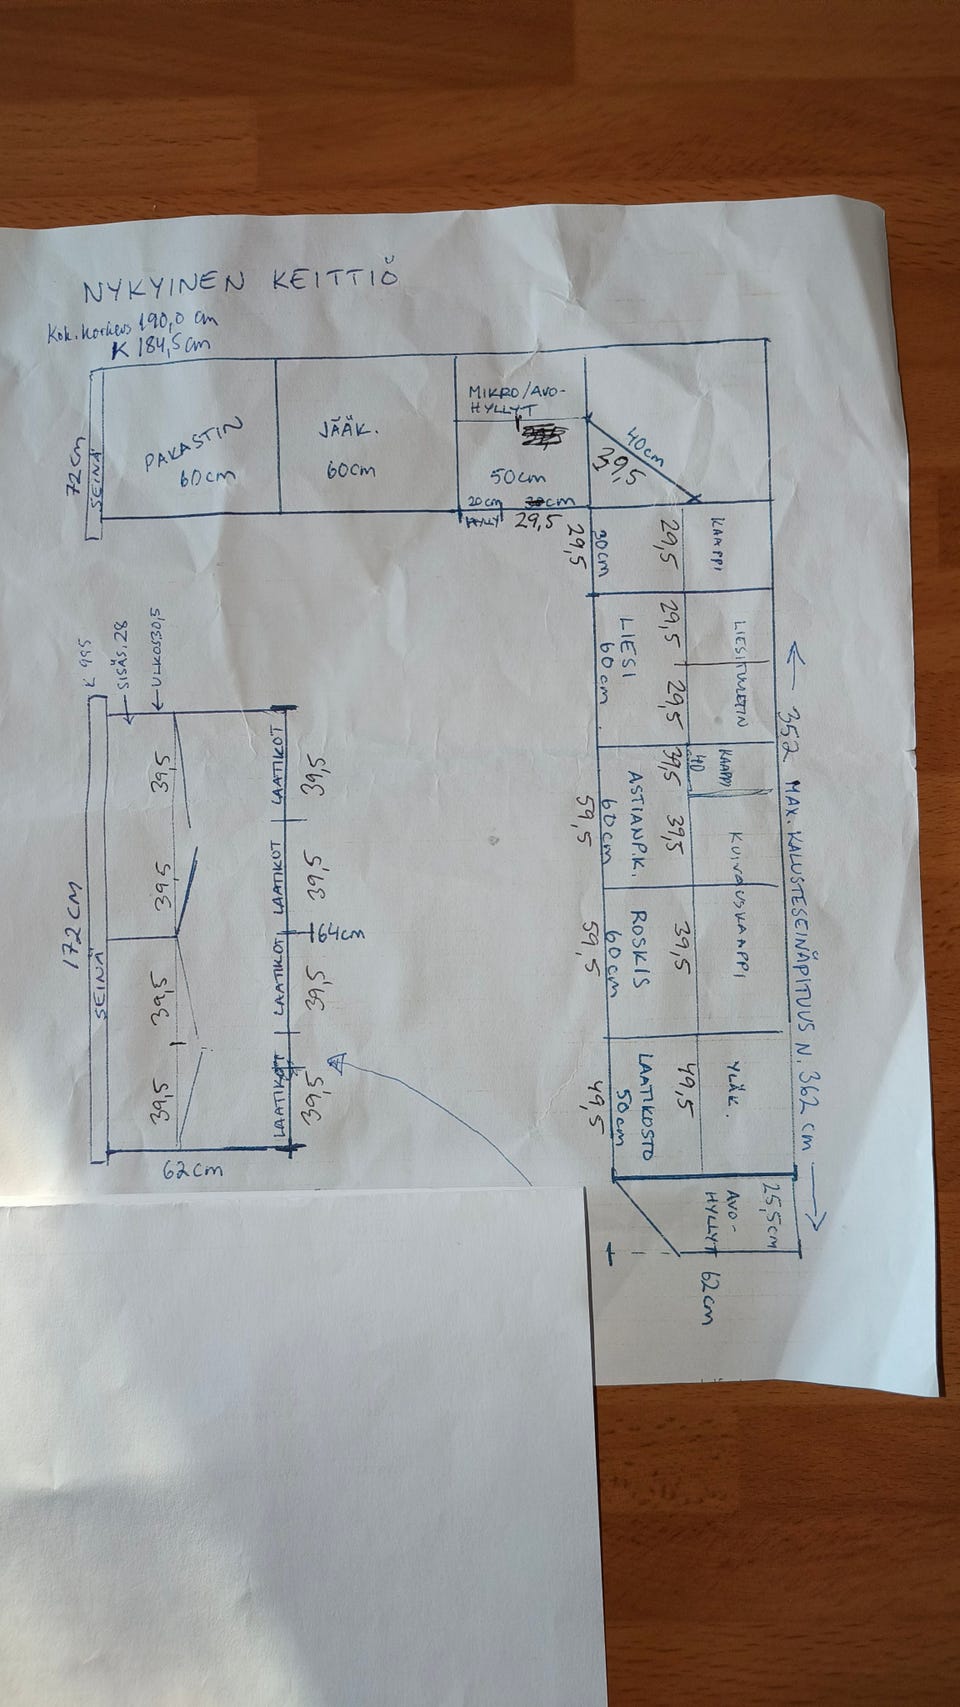 NYKYINEN KEITTIÖ
Kok. korkeus 190,0 cm
K 184,5 cm
72 cm
SEINÄ
PAKASTIN
60cm
JÄÄK.
60cm
MIKRO/AVO-
HYLLYT
50cm
20cm
cm
HYLLY
29,5
40cm
39,5
29,5
30cm
29,5
KAAPPI
LIESI
60cm
29,5
29,5
LIESITUULETIN
ASTIANP.K.
60cm
59,5
39,5
40
KAAPPI
39,5
KUIVAUSKAAPPI
ROSKIS
60cm
59,5
39,5
LAATIKOSTO
50cm
49,5
49,5
YLÄK.
25,5cm
AVO-
HYLLYT
62cm
352 MAX. KALUSTESEINÄPITUUS N. 362 cm
K 99,5
SISÄS. 28
ULKOS 30,5
172 CM
SEINÄ
39,5
39,5
39,5
39,5
LAATIKOT
LAATIKOT
LAATIKOT
LAATIKOT
39,5
39,5
64cm
39,5
39,5
62cm